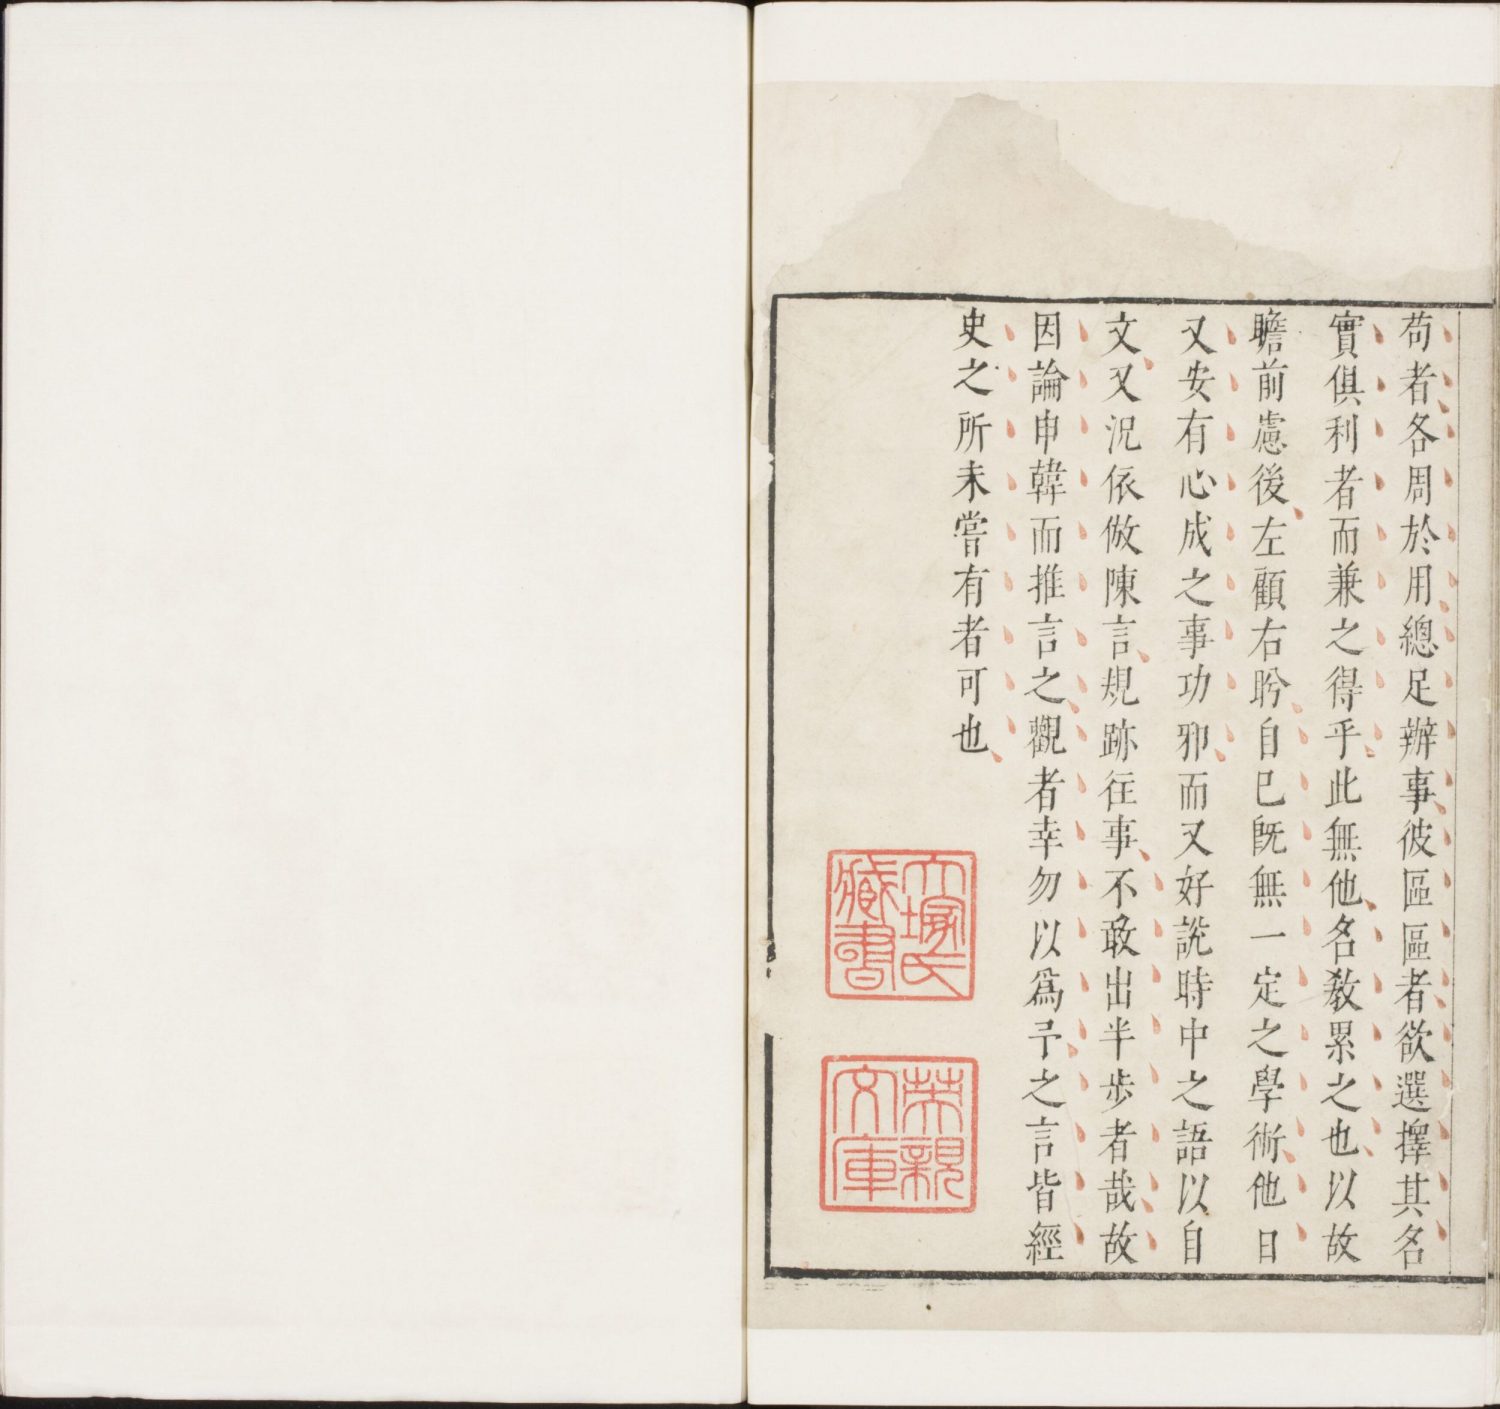 苟者各周於用總足辦事彼區區者欲選擇其名
實俱利者而兼之得乎此無他名教累之也以故
瞻前慮後左顧右盻自己旣無一定之學術他日
又安有必成之事功邪而又好說時中之語以自
文又況依倣陳言規跡往事不敢出半步者哉故
因論申韓而推言之觀者幸勿以爲予之言皆經
史之所未嘗有者可也
大塚氏
藏書
榮親
文庫